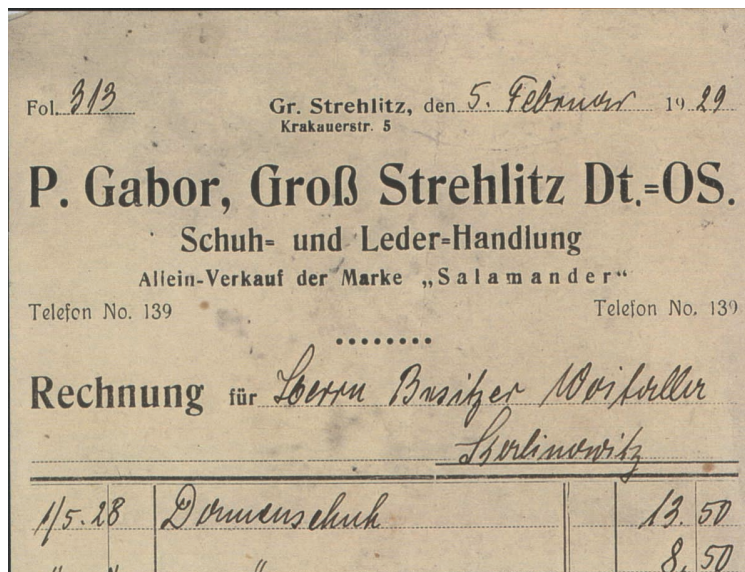 Fol. 313 Gr. Strehlitz, den 5. Februar 1929
Krakauerstr. 5
P. Gabor, Groß Strehlitz Dt.=OS.
Schuh= und Leder=Handlung
Allein-Verkauf der Marke „Salamander“
Telefon No. 139 Telefon No. 139
Rechnung für Herrn Besitzer
1/5. 28 Damenschuh 13. 50
" " " 8, 50